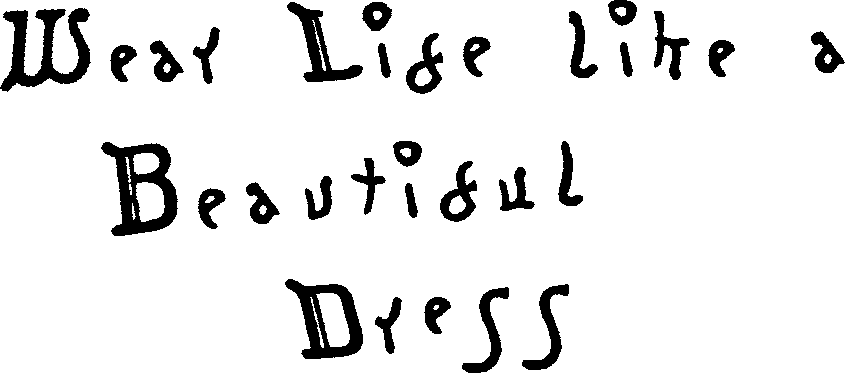 Wear Life like a
Beautiful
Dress